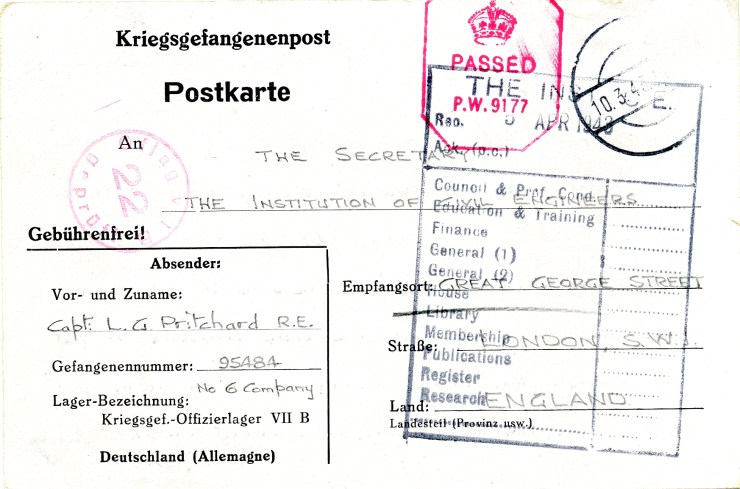 Kriegsgefangenenpost
Postkarte
PASSED
P.W. 9177
10.3.4
THE INS E.
Rec. 5 APR 1943
Ack. (p.c.)
Council & Prof. Cond.
Education & Training
Finance
General (1)
General (2)
House
Library
Membership
Publications
Register
Research
22
An THE SECRETARY
THE INSTITUTION OF CIVIL ENGINEERS
Gebührenfrei!
Absender:
Vor- und Zuname:
Capt: L. G. Pritchard R.E.
Gefangenennummer: 95484
No 6 Company
Lager-Bezeichnung:
Kriegsgef.-Offizierlager VII B
Deutschland (Allemagne)
Empfangsort: GREAT GEORGE STREET
Straße: LONDON, S.W.1.
Land: ENGLAND
Landesteil (Provinz usw.)